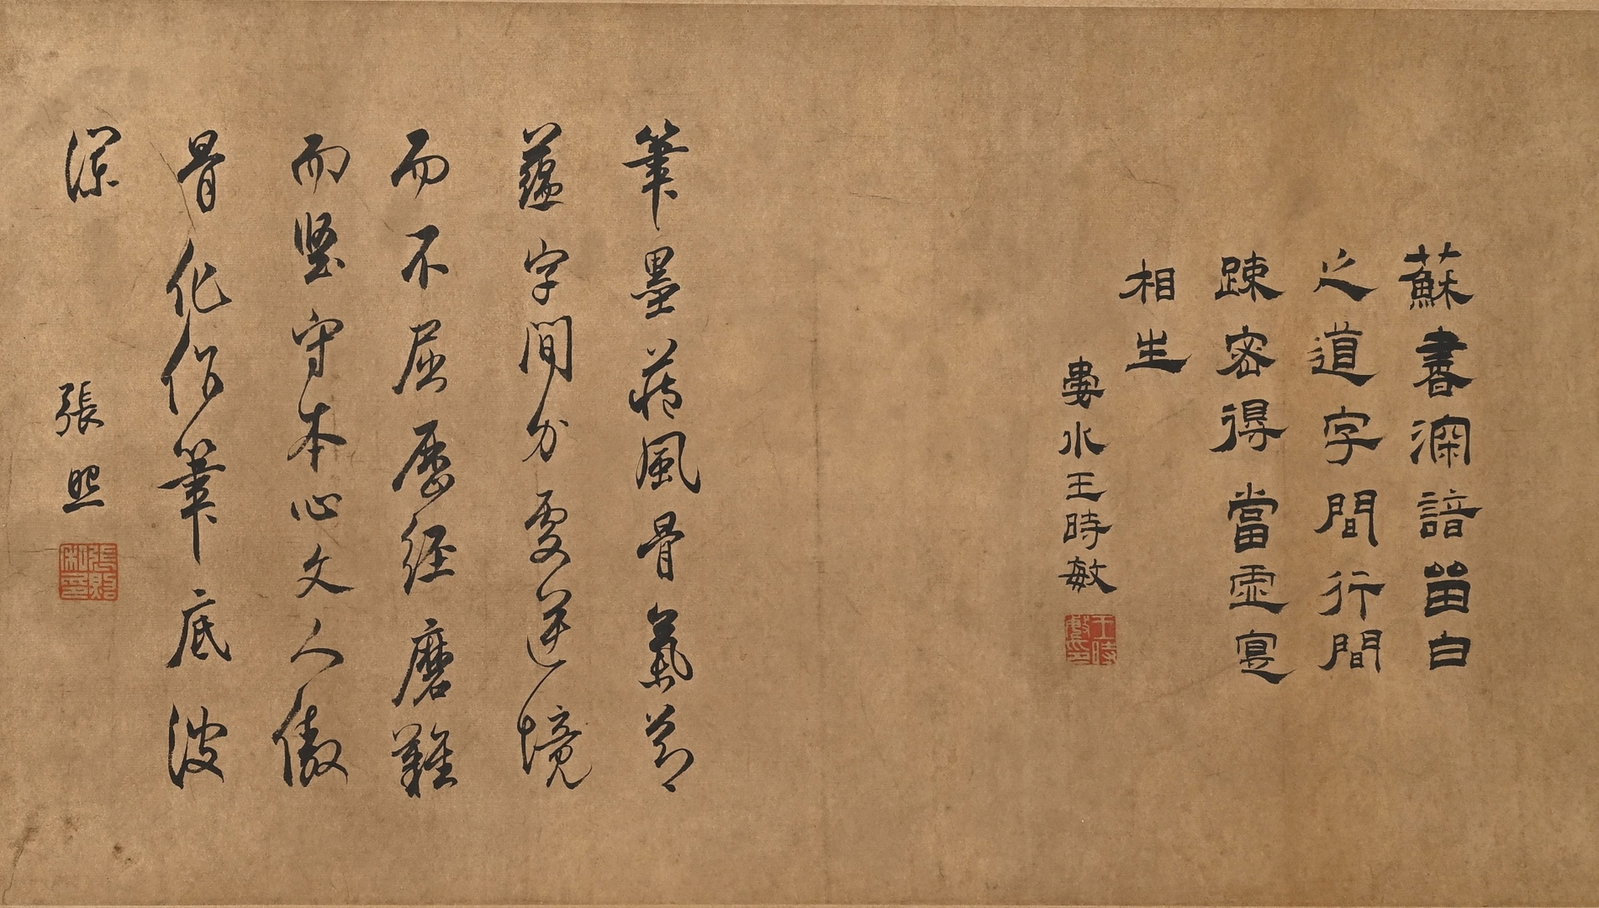 蘇書深諳留白
之道字間行間
疎密得當虛實
相生
婁水王時敏
王時敏印
筆墨藏風骨氣節
蘊字間身處逆境
而不屈歷經磨難
而堅守本心文人傲
骨化作筆底波
瀾
張照